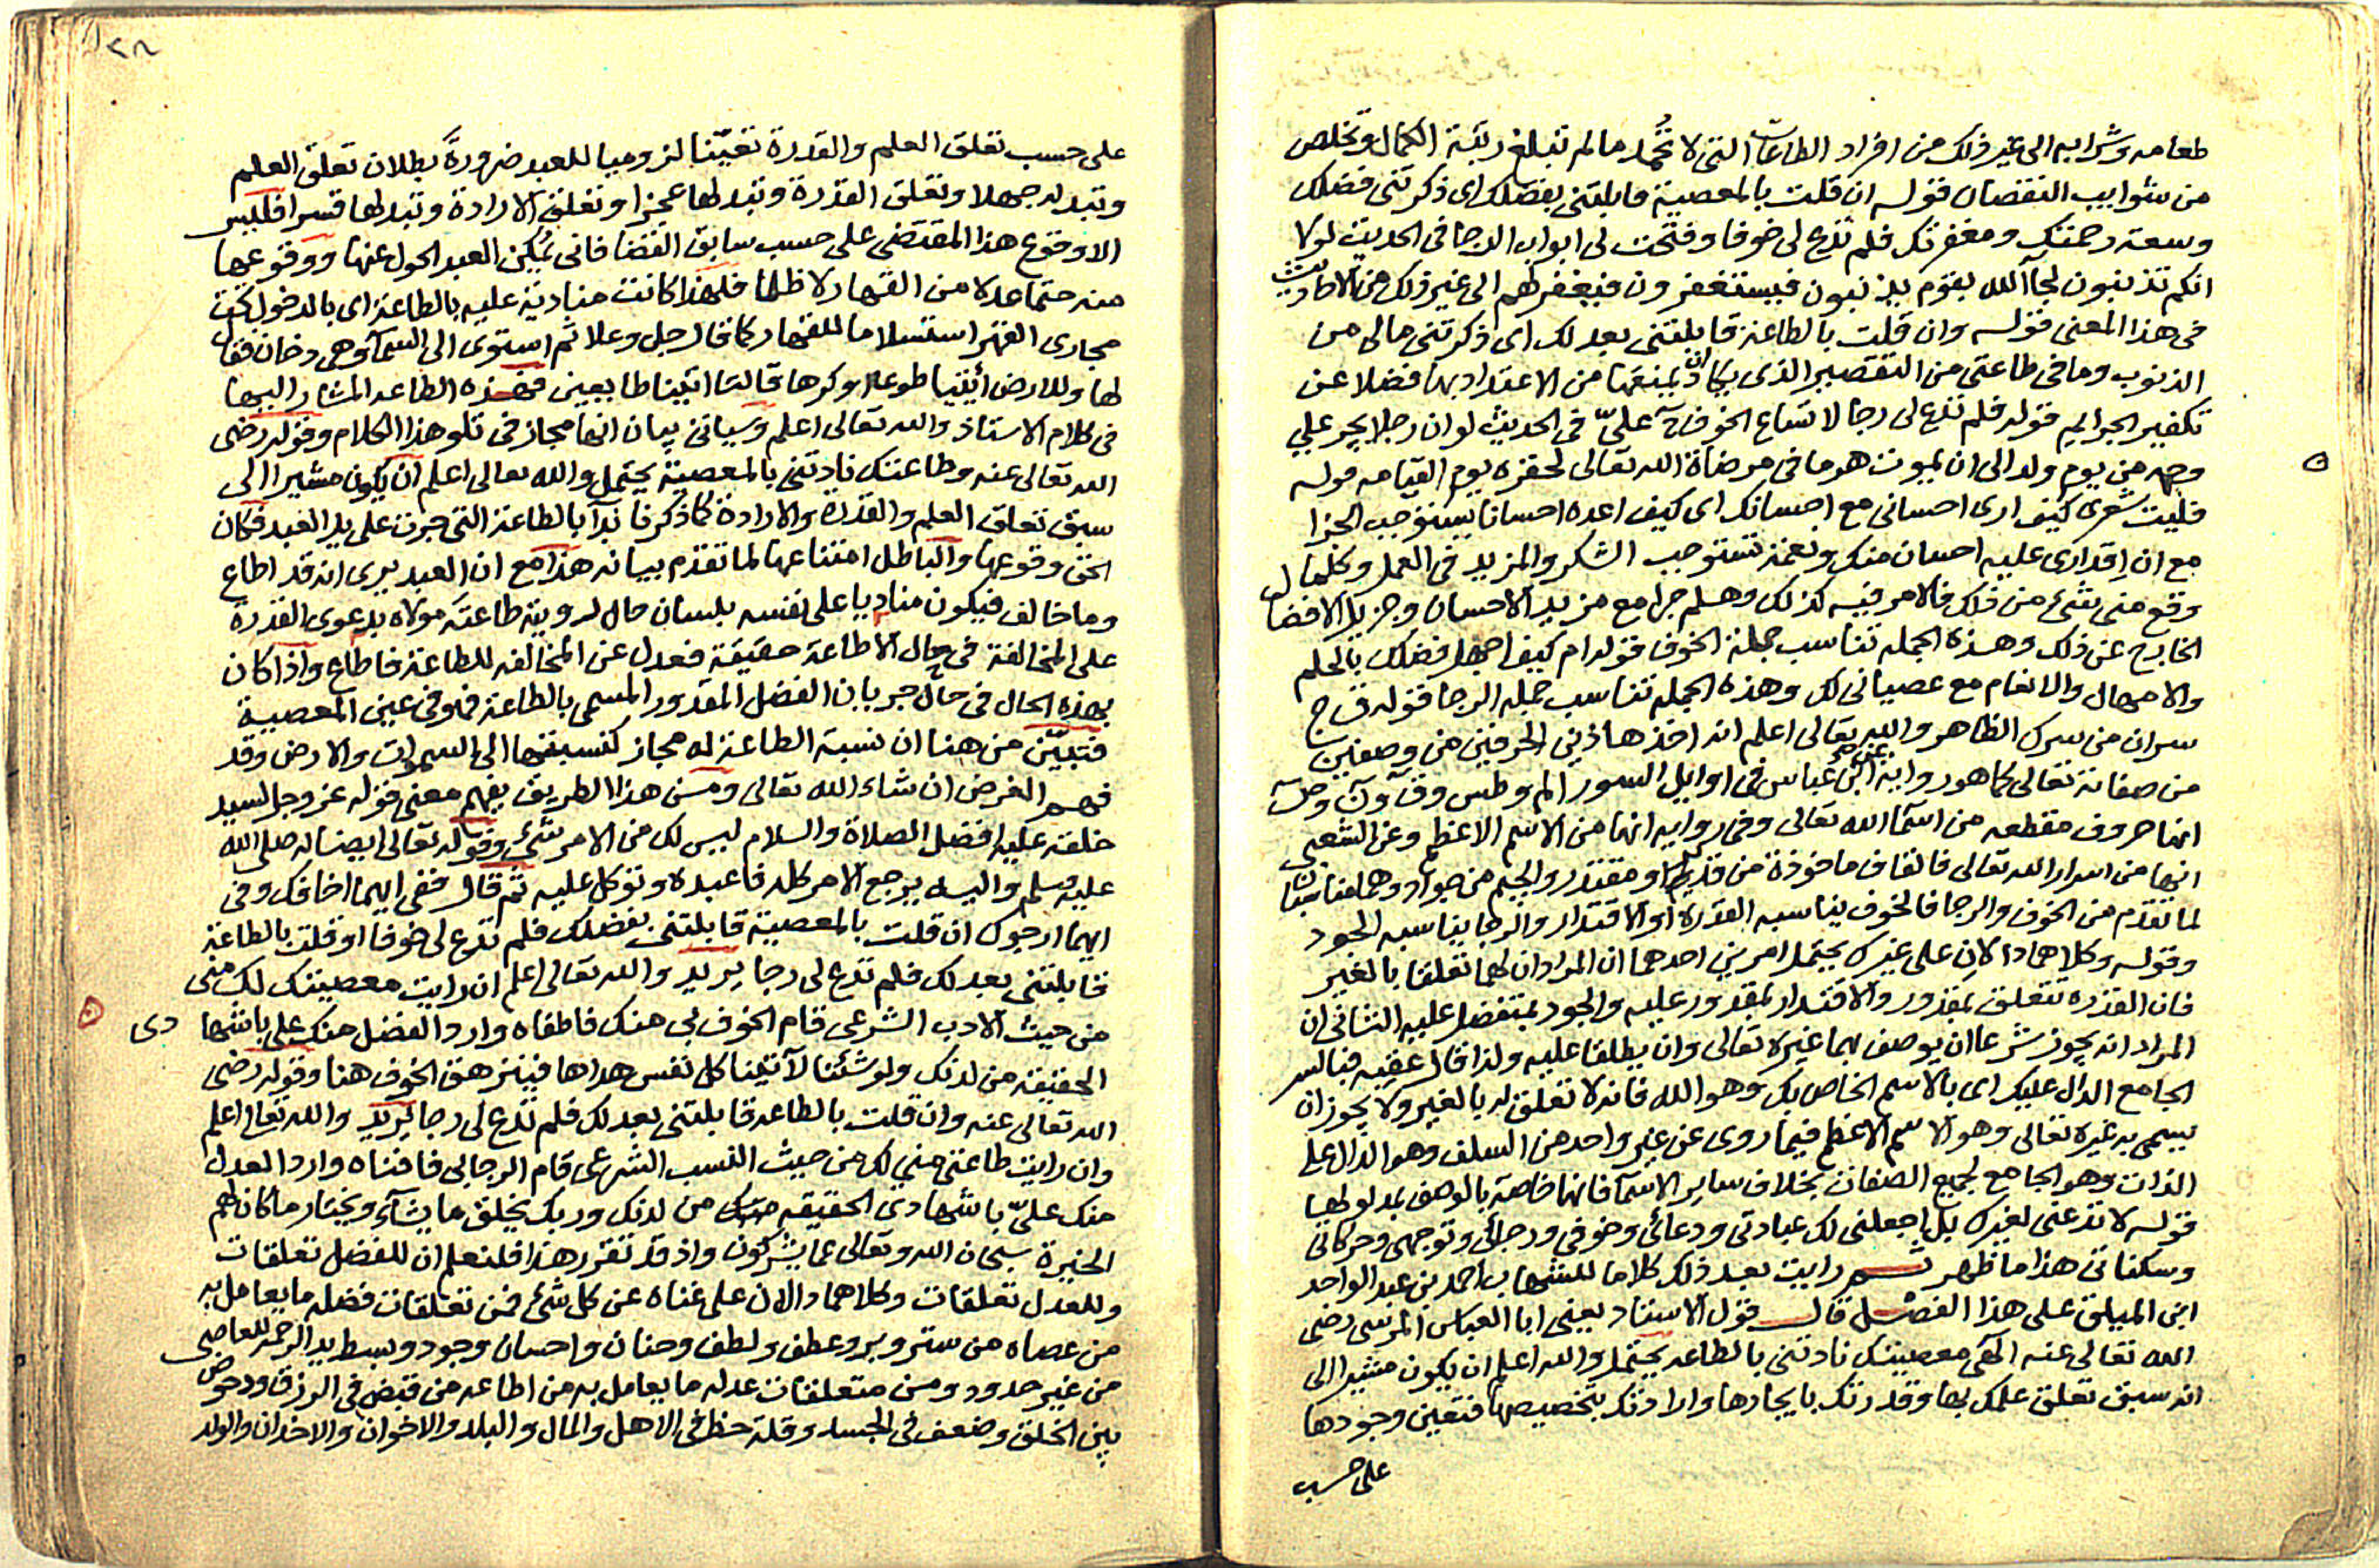 طعامه وشرابه الى غير ذلك من افراد الطاعات التى لا تُحمد ما لم تبلغ رتبة الكمال وتخلص
من شوايب النقصان قوله ان قلت بالمعصية قابلتنى بفضلك اى ذكرتنى فضلك
وسعة رحمتك ومغفرتك فلم تدع لى خوفا وفتحت لى ابواب الرجا فى الحديث لولا
انكم تذنبون لجآ الله بقوم يذنبون فيستغفرون فيغفر لهم الى غير ذلك من الاحاديث
فى هذا المعنى قوله وان قلت بالطاعة قابلتنى بعدلك اى ذكرتنى مالى من
الذنوب وما فى طاعتى من التقصير الذى يكاد ان يمنعها من الاعتداد بها فضلا عن
تكفير الجرايم قوله فلم تدع لى رجا لاتساع الخوف ح علىّ فى الحديث لو ان رجلا يجر على
وجهه من يوم ولد الى ان يموت هرما فى مرضاة الله تعالى لحقره يوم القيامه قوله
فليت شعرى كيف ارى احسانى مع احسانك اى كيف اعده احسانا يستوجب الجزا
مع ان اِقدارى عليه احسان منك ونعمة تستوجب الشكر والمزيد فى العمل وكلما
وقع منى شئ من ذلك فالامر فيه كذلك وهلم جرا مع مزيد الاحسان وجزيل الافضال
الخارج عن ذلك وهذه الجمله تناسب جملة الخوف قوله ام كيف اجهل فضلك بالحلم
والامهال والانعام مع عصيانى لك وهذه الجمله تناسب جمله الرجا قوله ق ج
سران من سرك الظاهر والله تعالى اعلم انه اخذ هاذين الحرفين من وصفين
من صفاته تعالى كما هو رواية عن ابن عباس فى اوايل السور الم وطس وق ون وص
انها حروف مقطعه من اسمآ الله تعالى وفى روايه انها من الاسم الاعظم وعن الشعبى
انها من اسرار الله تعالى فالقاف ماخوذة من قدير او مقتدر والجيم من جواد وهما مناسبان
لما تقدم من الخوف والرجا فالخوف يناسبه القدرة او الاقتدار والرجا يناسبه الجود
وقوله وكلاهما دالان على غيرك يحتمل امرين احدهما ان المراد ان لهما تعلقا بالغير
فان القدره تتعلق بمقدور والاقتدار بمقدور عليه والجود بمتفضل عليه الثانى ان
المراد انه يجوز شرعا ان يوصف بهما غيره تعالى وان يطلقا عليه ولذا قال عقبه فبالسر
الجامع الدال عليك اى بالاسم الخاص بك وهو الله فانه لا تعلق له بالغير ولا يجوز ان
يسمى به غيره تعالى وهو الاسم الاعظم فيما روى عن غير واحد من السلف وهو الدال على
الذات وهو الجامع لجميع الصفات بخلاف ساير الاسمآ فانها خاصة بالوصف بمدلولها
قوله لا تدعنى لغيرك بل اجعلنى لك عبادتى ودعائى وخوفى ورجائى وتوجهى وحركاتى
وسكناتى هذا ما ظهر ثم رايت بعد ذلك كلاما للشهاب احمد بن عبد الواحد
ابن الميلق على هذا الفصل قال قول الاستاذ يعنى ابا العباس المرسى رضى
الله تعالى عنه الهى معصيتك نادتنى بالطاعه يحتمل والله اعلم ان يكون مشيرا الى
انه سبق تعلق علمك بها وقدرتك بايجادها وارادتك بتخصيصها فتعين وجودها
على حسب
٢٨
على حسب تعلق العلم والقدرة تعيّنا لزوميا للعبد ضرورةً بطلان تعلق العلم
وتبدله جهلا وتعلق القدرة وتبدلها عجزا وتعلق الارادة وتبدلها قسرا فليس
الا وقوع هذا المقتضى على حسب سابق القضا فانى يُمكن العبد الحول عنها ووقوعها
منه حتما عدلا من القهار لا ظلما فلهذا كانت منادية عليه بالطاعة اى بالدخول تحت
مجارى القهر استسلاما للقهار كما قال جل وعلا ثم استوى الى السمآ وهى دخان فقال
لها وللارض ائتيا طوعا او كرها قالتا اتينا طايعين فهذه الطاعه المشار اليها
فى كلام الاستاذ والله تعالى اعلم وسياتى بيان انها مجاز فى تلو هذا الكلام وقوله رضى
الله تعالى عنه وطاعتك نادتنى بالمعصية يحتمل والله تعالى اعلم ان يكون مشيرا الى
سبق تعلق العلم والقدرة والارادة كما ذكرنا بدآ بالطاعة التى جرت على يد العبد فكان
الحق وقوعها والباطل امتناعها لما تقدم بيانه هذا مع ان العبد يرى انه قد اطاع
وما خالف فيكون مناديا على نفسه بلسان حال لروية طاعتهَ مولاه بدعوى القدرة
على المخالفة فى حال الاطاعة حقيقة فعدل عن المخالفه للطاعة فاطاع واذا كان
بهذه الحال فى حال جريان الفضل المقدور المسمى بالطاعة فهو فى عين المعصية
فتبيّن من هنا ان نسبة الطاعة له مجاز كنسبتها الى السموات والارض وقد
فهم الغرض ان شاء الله تعالى ومن هذا الطريق يفهم معنى قوله عز وجل لسيد
خلقه عليه افضل الصلاة والسلام ليس لك من الامر شئ وقوله تعالى ايضا له صلى الله
عليه وسلم واليه يرجع الامر كله فاعبده وتوكل عليه ثم قال ففى ايهما اخافك وفى
ايهما ارجوك ان قلت بالمعصية قابلتنى بفضلك فلم تدع لى خوفا او قلت بالطاعة
قابلتنى بعدلك فلم تدع لى رجا يريد والله تعالى اعلم ان رايت معصيتك لك منى
من حيث الادب الشرعى قام الخوف بى منك فاطفاه وارد الفضل منك على باشهادى
الحقيقة من لدنك ولو شئنا لآتينا كل نفس هداها فيزهق الخوف هنا وقوله رضى
الله تعالى عنه وان قلت بالطاعه قابلتنى بعدلك فلم تدع لى رجا يريد والله تعالى اعلم
وان رايت طاعتى منى لك من حيث النسب الشرعى قام الرجا بى فافناه وارد العدل
منك علىّ باشهادى الحقيقه من لدنك وربك يخلق ما يشآء ويختار ما كان لهم
الخيرة سبحان الله وتعالى عما يشركون واذ قد تقرر هذا فلنعلم ان للفضل تعلقات
وللعدل تعلقات وكلاهما دالان على غناه عن كل شئ فمن تعلقات فضله ما يعامل به
من عصاه من ستر وبر وعطف ولطف وحنان واحسان وجود وبسط يد الرحمة للعاصى
من غير حدود ومن متعلقات عدله ما يعامل به من اطاعه من قبض فى الرزق ودحوض
بين الخلق وضعف فى الجسد وقلة حظ فى الاهل والمال والبلد والاخوان والاخدان والولد